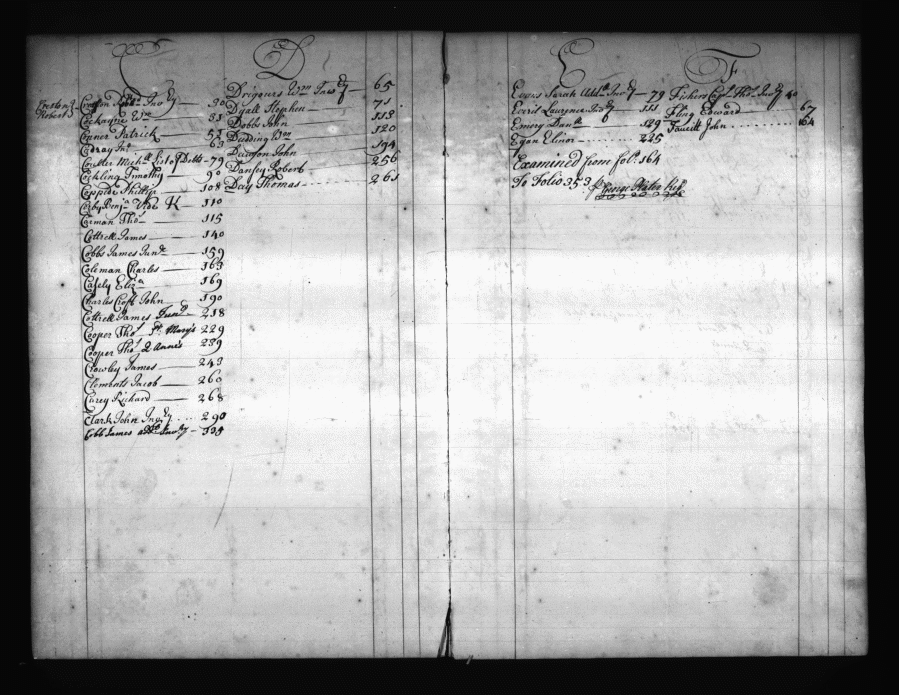 C
Creston Robt Invy — 30
Cockayne Wm — 31
Conner Patrick — 52
Codray Jno — 63
Coulter Michll List of Debts — 79
Cockling Timothy — 90
Coppidg Phillip — 108
Corby Benja Vide K — 110
Carman Thos — 115
Cottrell James — 140
Cobbs James Junr — 159
Coleman Charles — 163
Casely Eliza — 169
Charles Croft John — 190
Cottrell James Junr — 218
Cooper Thos St Marys — 229
Cooper Thos Q Anns — 239
Crowley James — 243
Clements Jacob — 260
Carey Richard — 268
Clark John Invy — 290
Cobb James addl Invy —
Creston
Robert
D
Driggers Wm Invy — 65
Dyall Stephen — 71
Dobbs John — 113
Dudding Wm — 120
Dawson John — 194
Dansey Robert — 256
Day Thomas — 261
E
Evans Sarah Addl Invy — 79
Everit Laurence Invy — 111
Emory Danll — 129
Egan Elinor — 225
Examined from fol. 164
To Folio 353
George Plater
F
Fisher Capt Thos Invy 40
Fling Edward — 67
Faucett John — 164